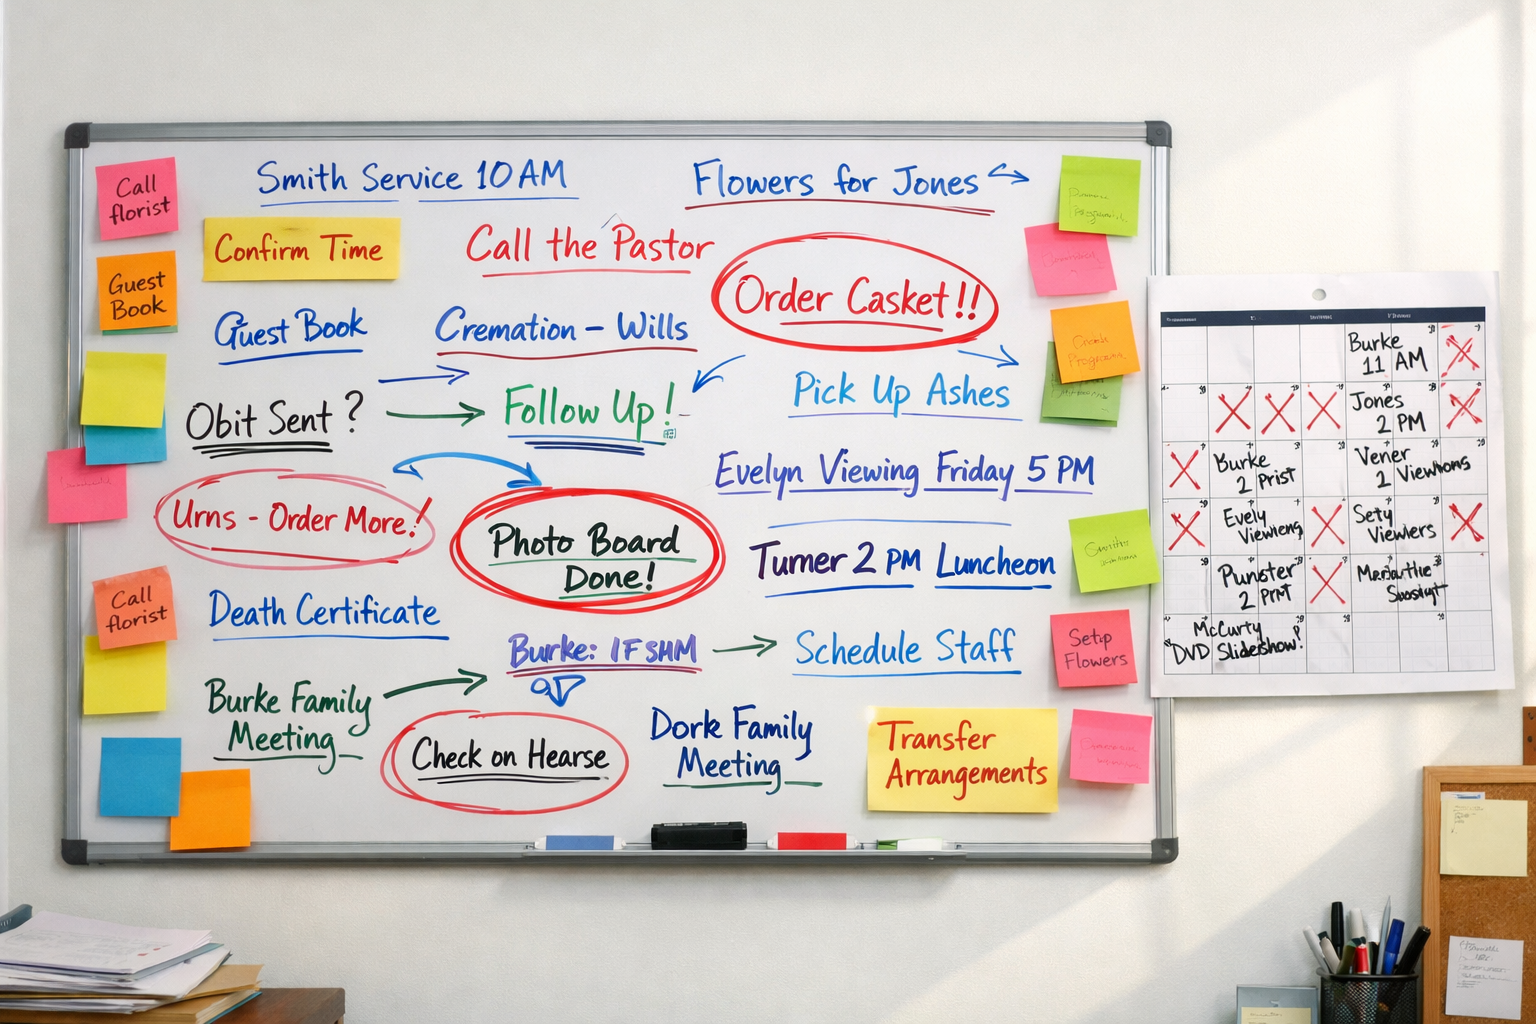 Smith Service 10 AM
Flowers for Jones
Call
florist
Confirm Time
Call the Pastor
Order Casket!!
Guest
Book
Guest Book
Cremation - Wills
Obit Sent?
Follow Up!
Pick Up Ashes
Evelyn Viewing Friday 5 PM
Urns - Order More!
Photo Board
Done!
Turner 2 PM Luncheon
Call
florist
Death Certificate
Burke:
Schedule Staff
Setup
Flowers
Burke Family
Meeting
Check on Hearse
Dork Family
Meeting
Transfer
Arrangements
Burke
11 AM
Jones
2 PM
Burke
2 Prist
Vener
2
Evely
Sety
Punster
2
McCurty
"DVD Slideshow!